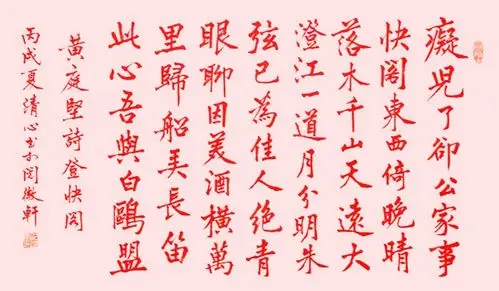 癡兒了卻公家事
快閣東西倚晚晴
落木千山天遠大
澄江一道月分明朱
弦已為佳人絕青
眼聊因美酒橫萬
里歸船弄長笛
此心吾與白鷗盟
黃庭堅詩登快閣
丙戌夏清心書於閱微軒